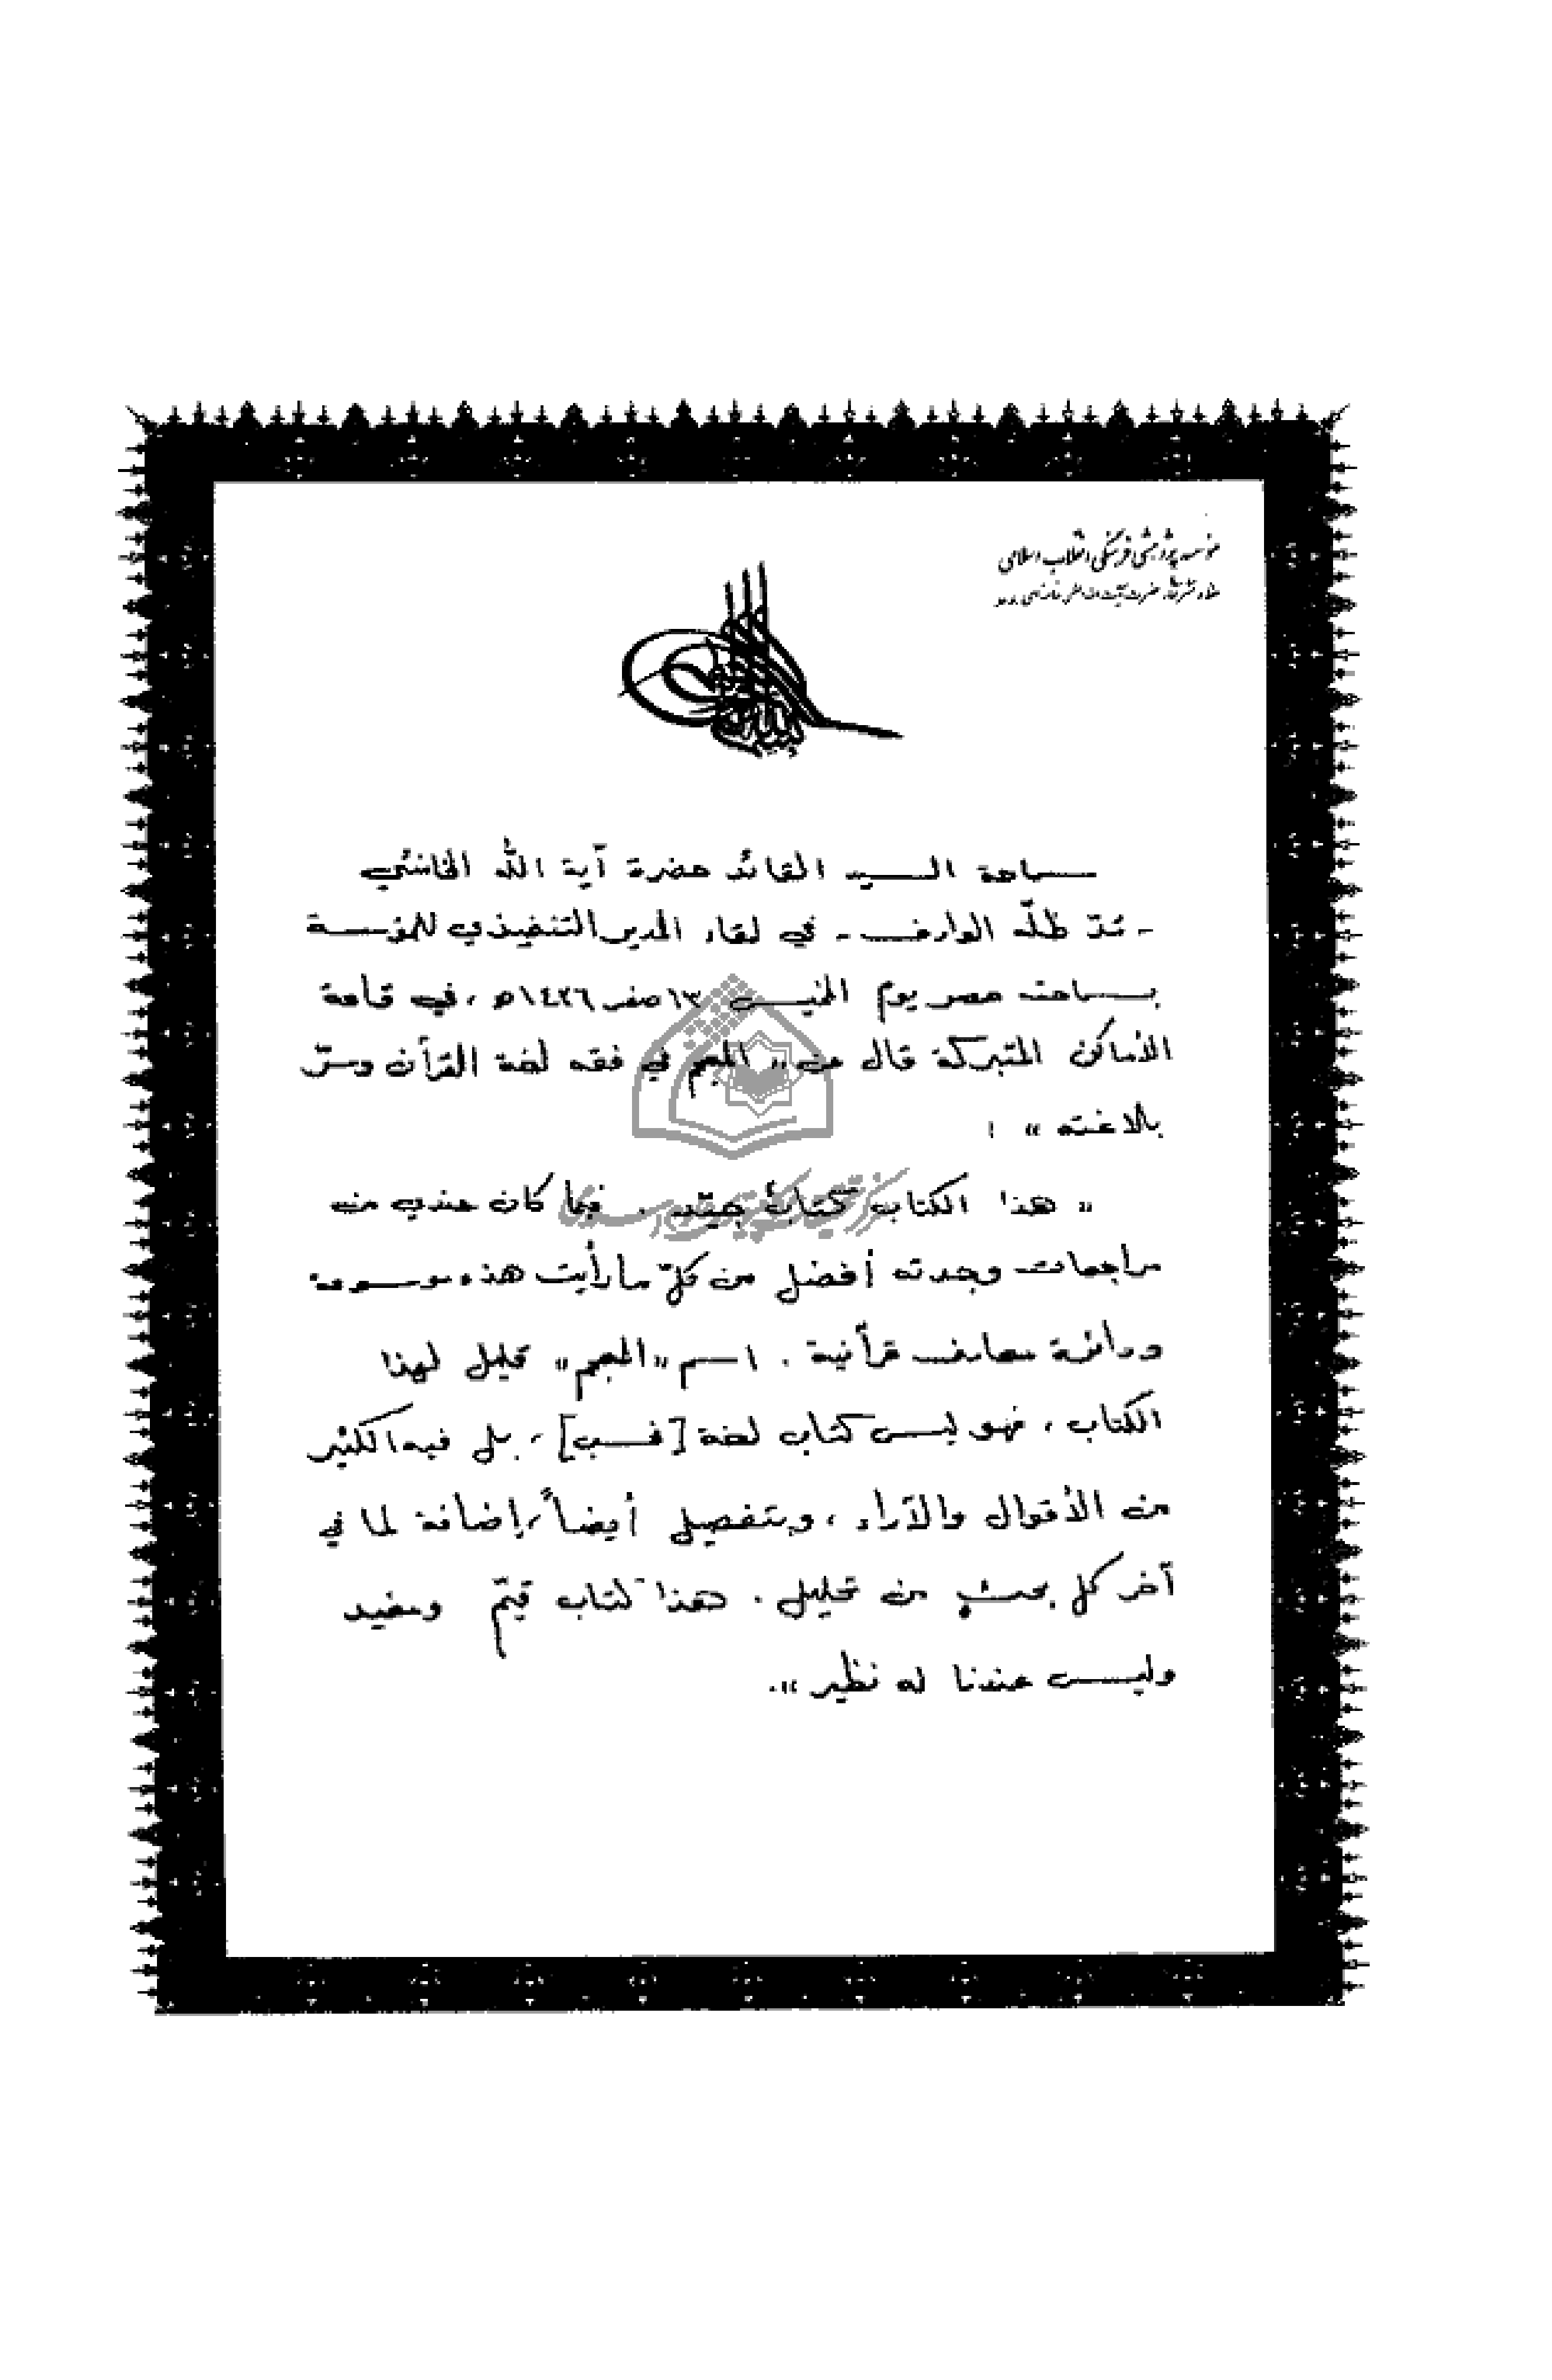 مؤسسه پژوهشی فرهنگی انقلاب اسلامی
سماحة السيد القائد حضرة آية الله الخامنئي
- مُدّ ظلّه الوارف - في لقاء المدير التنفيذي للمؤسسة
بساحته عصر يوم الخميس ١٣ صفر ١٤٢٦ه ، في قاعة
الأماكن المتبركة قال عن « المعجم في فقه لغة القرآن وسرّ
بلاغته » :
« هذا الكتاب كتابٌ جيّد . فيما كان عندي من
مراجعات وجدته أفضل من كلّ ما رأيت هذه موسوعة
ودائرة معارف قرآنية . اسم «المعجم» قليل لهذا
الكتاب ، فهو ليس كتاب لغة [فحسب] ، بل فيه الكثير
من الأقوال والآراء ، وبتفصيل أيضاً ، إضافة لما في
آخر كل بحثٍ من تحليل . هذا كتاب قيّم ومفيد
وليس عندنا له نظير ».